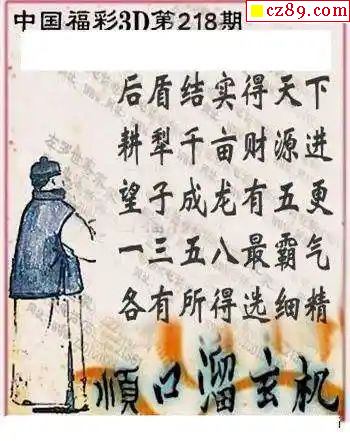 cz89.com
中国福彩3D第218期
后盾结实得天下
耕犁千亩财源进
望子成龙有五更
一三五八最霸气
各有所得选细精
順口溜玄机